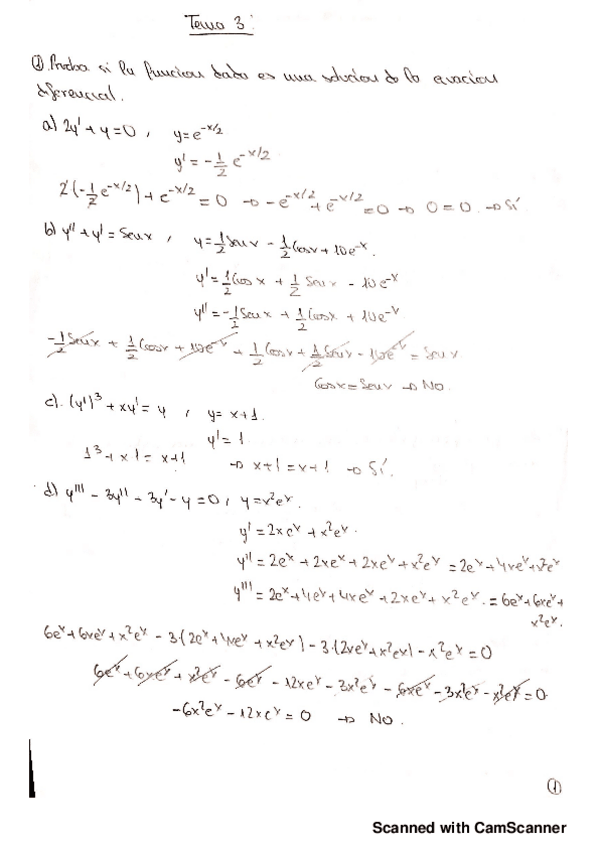 Tema 3:
① Prueba si la funcion dada es una solucion de la ecuacion
diferencial.
a) 2y' + y = 0 , y = e^{-x/2}
y' = -1/2 e^{-x/2}
2(-1/2 e^{-x/2}) + e^{-x/2} = 0 → -e^{-x/2} + e^{-x/2} = 0 → 0 = 0 → Sí
b) y'' + y' = Sen x , y = 1/2 Sen x - 1/2 Cos x + 10e^{-x}.
y' = 1/2 Cos x + 1/2 Sen x - 10e^{-x}
y'' = -1/2 Sen x + 1/2 Cos x + 10e^{-x}
-1/2 Sen x + 1/2 Cos x + 10e^{-x} + 1/2 Cos x + 1/2 Sen x - 10e^{-x} = Sen x
Cos x = Sen x → No
c). (y')^3 + xy' = y , y = x + 1.
y' = 1
1^3 + x 1 = x + 1 → x + 1 = x + 1 → Sí.
d) y''' - 3y'' - 3y' - y = 0 , y = x^2e^x.
y' = 2xe^x + x^2e^x.
y'' = 2e^x + 2xe^x + 2xe^x + x^2e^x = 2e^x + 4xe^x + x^2e^x
y''' = 2e^x + 4e^x + 4xe^x + 2xe^x + x^2e^x. = 6e^x + 6xe^x +
x^2e^x.
6e^x + 6xe^x + x^2e^x - 3·(2e^x + 4xe^x + x^2e^x) - 3·(2xe^x + x^2e^x) - x^2e^x = 0
6e^x + 6xe^x + x^2e^x - 6e^x - 12xe^x - 3x^2e^x - 6xe^x - 3x^2e^x - x^2e^x = 0
-6x^2e^x - 12xe^x = 0 → No.
①
Scanned with CamScanner